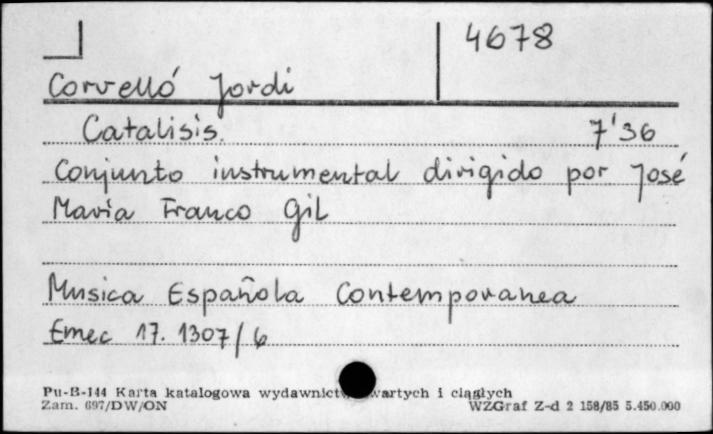 4678
Corvelló Jordi
Catalisis. 7'36
Conjunto instrumental dirigido por José
Maria Franco Gil
Musica Española Contemporanea
Emec 17. 1307/6
Pu-B-144 Karta katalogowa wydawnictw zwartych i ciągłych
Zam. 697/DW/ON WZGraf Z-d 2 158/85 5.450.000